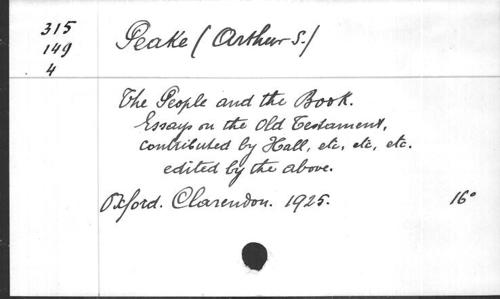 315
149
4
Peake (Arthur S.)
The People and the Book.
Essays on the Old Testament,
contributed by Hall, etc, etc, etc.
edited by the above.
Oxford. Clarendon. 1925. 16°